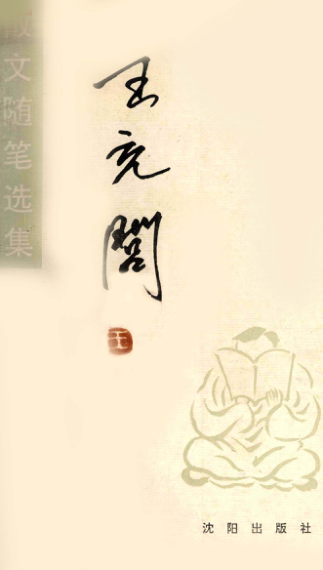 王充闾
散文随笔选集
王
沈阳出版社